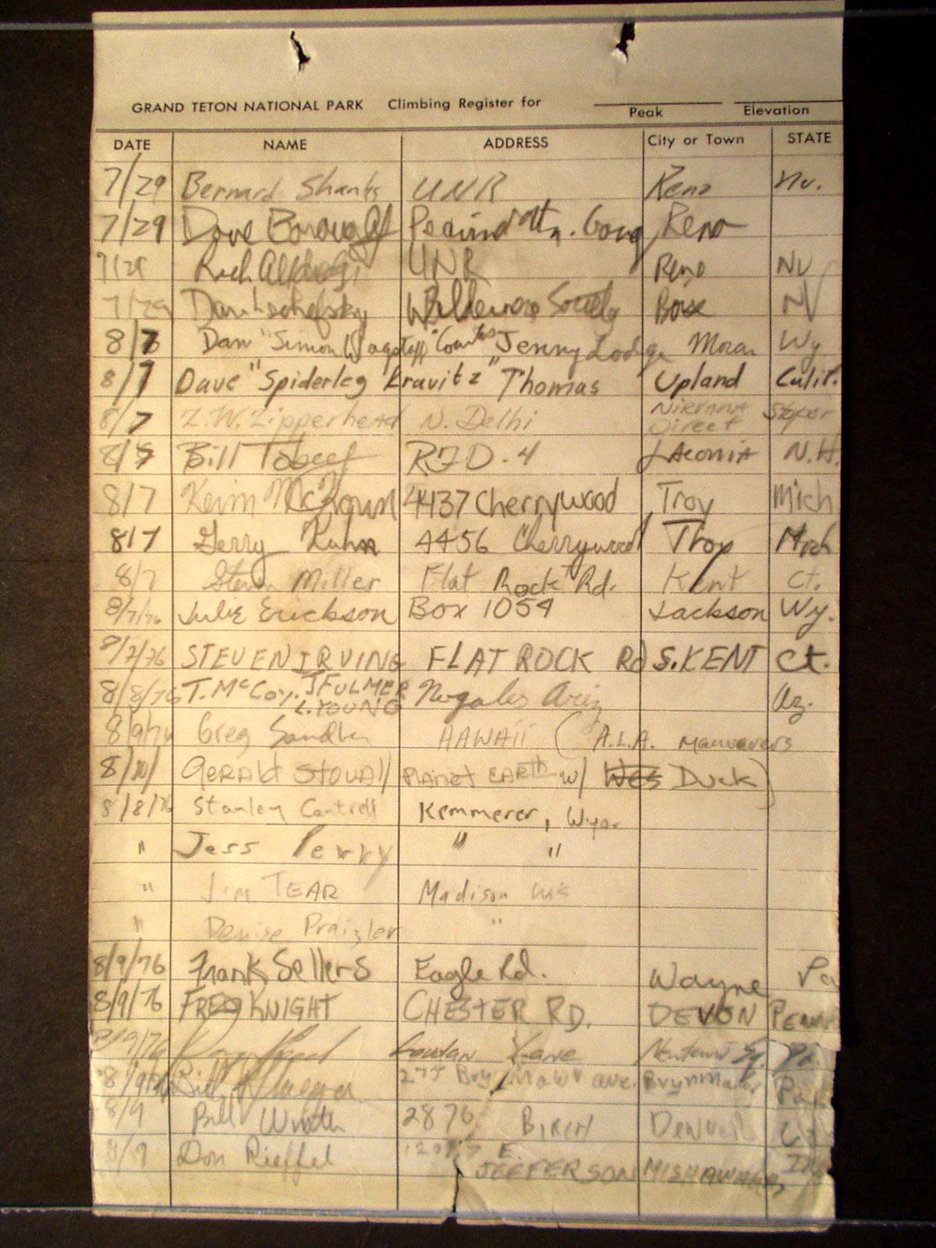 GRAND TETON NATIONAL PARK Climbing Register for
Peak Elevation
DATE NAME ADDRESS City or Town STATE
7/29 Bernard Shanks UNR Reno Nv.
7/29 Dave Reno
Rich UNR Reno NV
7/29 Dan Wilderness Society Boise
8/7 Dan "Simon Jenny Lodge Moran Wy
8/7 Dave "Spiderleg Kravitz" Thomas Upland Calif.
8/7 Z.W. Zipperhead N. Delhi Nirvana Direct
Bill RFD-4 Laconia N.H.
8/7 4437 Cherrywood Troy Mich
8/7 Gerry Kuhn 4456 Cherrywood Troy Mich
8/7 Miller Flat Rock Rd. Kent Ct.
8/7/76 Julie Erickson Box 1054 Jackson Wy.
8/7/76 STEVEN IRVING FLAT ROCK Rd S. KENT Ct.
8/8/76 T. McCoy, J FULMER Nogales Ariz Az.
L. YOUNG
8/9/76 Greg HAWAII (A.L.A. maneuvers
8/10/ GERALD STOVALL PLANET EARTH w/ Wes Duck)
8/8/76 Stanley Cantrell Kemmerer, Wyo.
" Jess Perry " "
" Jim TEAR Madison
" Denise Praizler "
8/9/76 Frank Sellers Eagle Rd. Wayne Pa
8/9/76 FRED KNIGHT CHESTER RD. DEVON PENN
Lane Newtown Sq. Pa.
8/9/76 Bill Ave. Bryn Mawr Pa
8/9 Bill 2876 BIRCH Denver
8/9 Don Rieffel E. JEFFERSON MISHAWAKA,